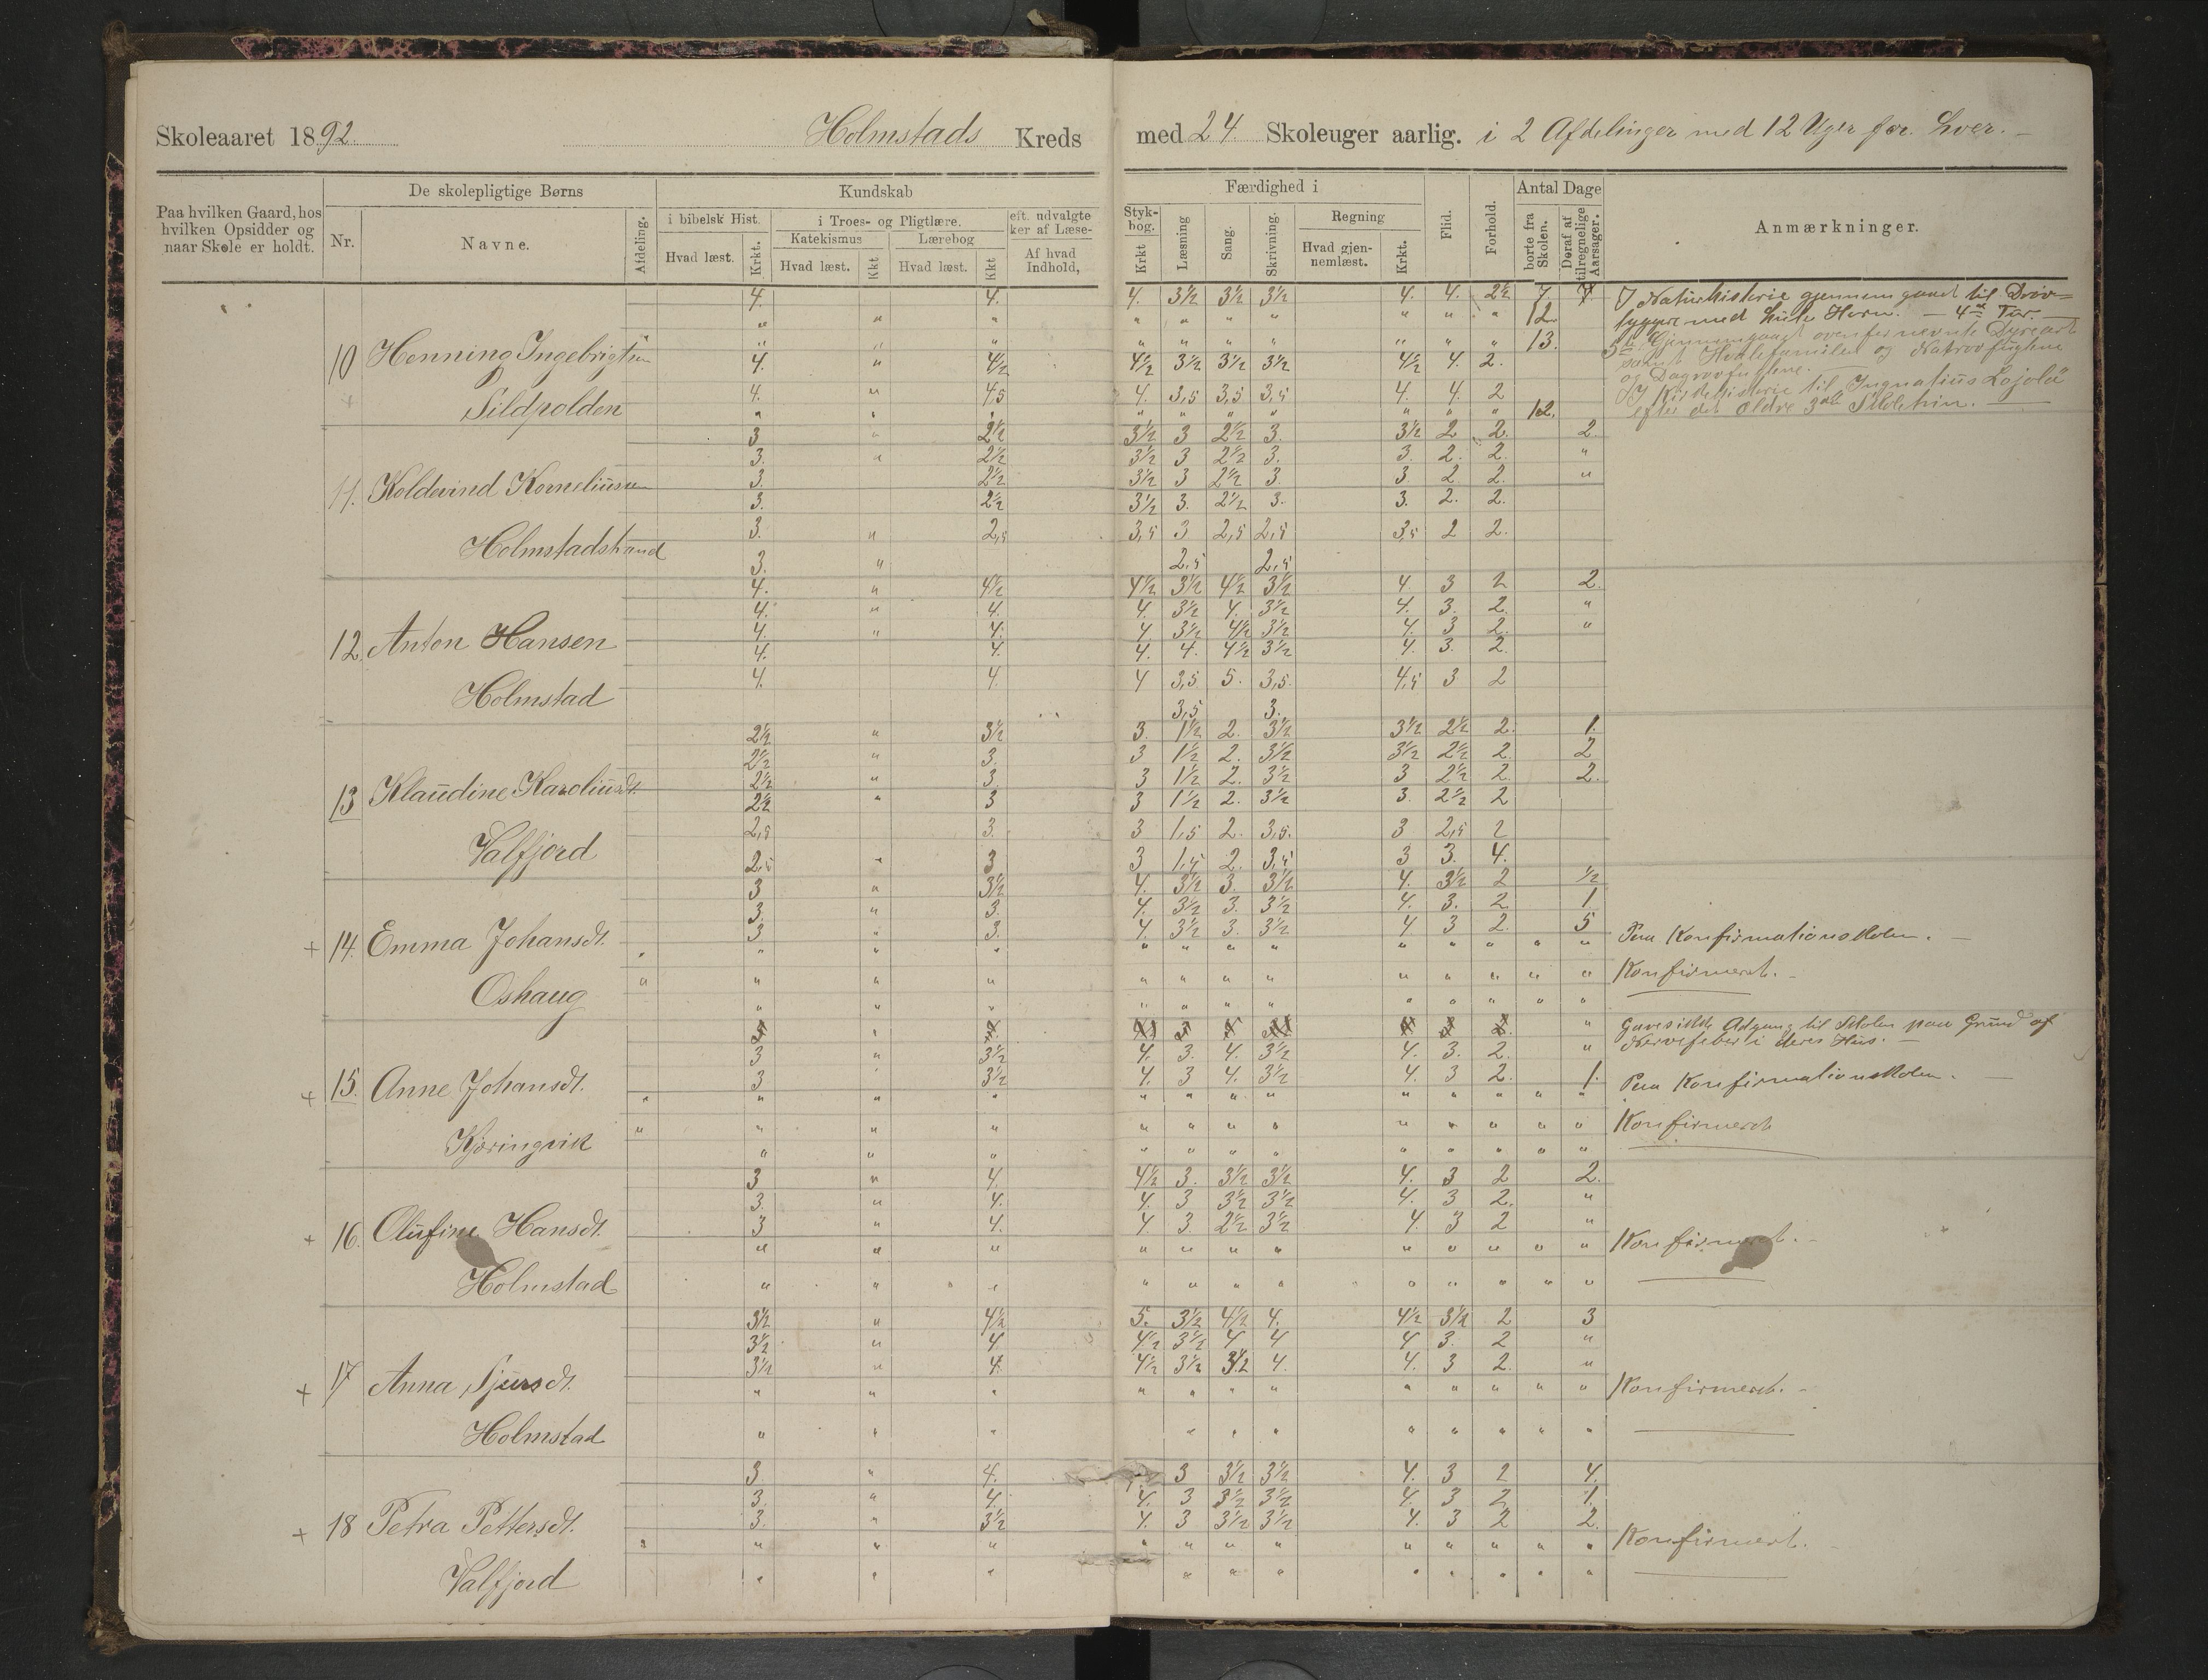 Skoleaaret 1892. Holmstads Kreds med 24 Skoleuger aarlig. i 2 Afdelinger med 12 Uger for hver. –
Paa hvilken Gaard, hos hvilken Opsidder og naar Skole er holdt.
Nr.
De skolepligtige Børns
Navne.
Afdeling.
Kundskab
i bibelsk Hist.
Hvad læst.
Krkt.
i Troes- og Pligtlære.
Katekismus
Hvad læst.
Kkt
Lærebog
Hvad læst.
Kkt
eft. udvalgte
ker af Læse-
Af hvad
Indhold,
Færdighed i
Styk-
bog.
Krkt
Læsning
Sang.
Skrivning.
Regning
Hvad gjen-
nemlæst.
Krkt.
Flid.
Forhold.
Antal Dage
borte fra
Skolen.
Deraf af
tilregnelige
Aarsager.
Anmærkninger.
4. 4. 4. 3½ 3½ 3½ 4. 4. 2½ 7. 7 I Naturhistorie gjennemgaaet til Drøv-
" " " " " " " " " " " 12. tyggere med hule Horn. – 4de Tur. –
" " " " " " " " " " 13. 5te Gjennemgaaet ovenfornevnte Dyreart
10 Henning Ingebrigtsen 4. " 4½ 4½ 3½ 3½ 3½ 4½ 4. 2. samt Hvalefamilien og Natrovfuglene
og Dagrovfuglene.
Sildpolden 4. " 4,5 4. 3,5 3,5 3,5 4. 4. 2 I Kirkehistorie til Ingnatius Lojola
" " " " " " " " " " 12. efter det ældre 3die Skoletrin.
3 " 2½ 3½ 3 2½ 3. 3½ 2 2. 2.
3. " 2½ 3½ 3 2½ 3. 3. 2. 2. "
11. Koldevind Korneliussen 3. 2½ 3½ 3 2½ 3. 3. 2 2. "
3. 2½ 3½ 3. 2½ 3. 3. 2. 2.
3. " 2,5 3,5 3 2,5 2,5 3,5 2 2.
Holmstadstrand
3. " 2,5 2,5
4. " 4½ 4½ 3½ 4½ 3½ 4 3 2 2.
4. " 4. 4. 3½ 4. 3½ 4. 3. 2. "
4. " 4. 4. 3½ 4½ 3½ 4. 3 2. "
12. Anton Hansen 4. 4. 4. 4. 4½ 3½ 4. 3. 2.
4. 4. 4 3,5 5. 3,5. 4,5 3 2
Holmstad
3,5 3.
2½ " 3½ 3. 1½ 2. 3½ 3½ 2½ 2. 1.
2½ " 3. 3 1½ 2. 3½ 3½ 2½ 2. 2
2½ " 3. 3 1½ 2. 3½ 3 2½ 2. 2.
13 Klaudine Karoliusdt. 2½ " 3 3 1½ 2. 3½ 3. 2½ 2
2,5 3. 3 1,5 2. 3,5. 3 2,5 2
Valfjord 2,5 " 3 3 1,5 2. 3,5 3 3. 4.
3 " 3½ 4. 3½ 3. 3½ 4. 3½ 2 ½
3. " 3. 4. 3½ 3. 3½ 4. 3. 2. 1
3 " 3. 4. 3½ 3. 3½ 4 3 2. 5
+ 14. Emma Johansdt. " " " " " " " " " " " " " Paa Konfirmationsskolen. –
Oshaug " " " " " " " " " " " " " Konfirmeret. –
" " " " " " " " " " " "
" " Gaves ikke Adgang til Skolen paa Grund af
3 " 3½ 4. 3. 4. 3½ 4. 3. 2. " Nervefeber i deres Hus. –
+ 15. Anne Johansdt. 3 " 3½ 4. 3 4. 3½ 4. 3 2. 1. Paa Konfirmationsskolen. –
" " " " " " " " " " " " "
Kjæringvik " " " " " " " " " " " " " Konfirmeret
" " " " " " " " " " " "
3 " 4. 4½ 3. 3½ 3½ 4. 3 2 2.
3. " 4. 4. 3 3½ 3½ 4. 3 2. "
+ 16. Olufine Hansdt. 3 " 4. 4. 3. 2½ 3½ 4. 3 2 "
" " " " " " " " " " " " Konfirmeret. –
Holmstad " " " " " " " " " " " " "
3½ " 4½ 5. 3½ 4½ 4. 4½ 3½ 2 3
3½ " 4. 4½ 3½ 4 4 4 3. 2 "
3½ " 4. 4½ 3½ 3½ 4. 4. 3 2. "
+ 17 Anna Sjursdt. " " " " " " " " " " " " Konfirmeret. –
Holmstad " " " " " " " " " " "
3. " 4. 3 3½ 3½ 4. 3 2 4.
3. " 4. 4. 3 3½ 3½ 4. 3 2 1.
+ 18 Petra Pettersdt. 3. " 3½ 4. 3 3½ 3½ 4. 3 2 2.
" " " " " " " " " " " " " Konfirmeret.
Valfjord " " " " " " " " " " "